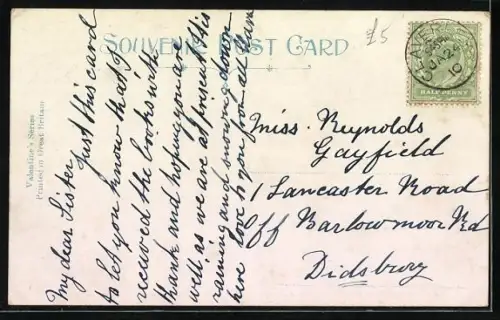 SOUVENIR POST CARD
£5
HALFPENNY
JA 24
10
Valentine's Series
Printed in Great Britain
My dear Sister
Just this card
to let you know that I
received the books with
thank and hoping you are
well as we are at prisent this
raining and snowing down
here love to you from all
Miss. Reynolds
Gayfield
1 Lancaster Road
Off Barlowmoor Rd
Didsbury